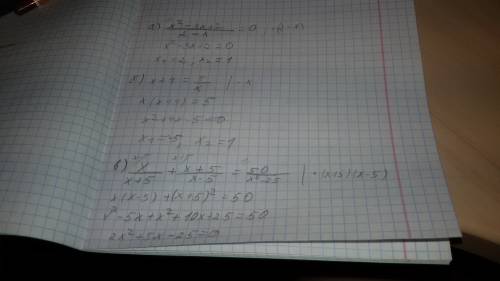 а) (x²-3x+2)/(2-x) = 0 | ·(2-x)
x²-3x+2=0
x₁=2; x₂=1
б) x+4 = 5/x | ·x
x(x+4)=5
x²+4x-5=0
x₁=-5, x₂=1
в) x/(x+5) + (x+5)/(x-5) = 50/(x²-25) | ·(x+5)(x-5)
x(x-5)+(x+5)²=50
x²-5x+x²+10x+25=50
2x²+5x-25=0